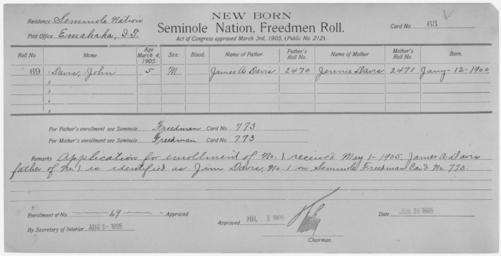 NEW BORN
Residence Seminole Nation
Seminole Nation, Freedmen Roll.
Card No. 63
Post Office Emahaka, I.T.
Act of Congress approved March 3rd, 1905, (Public No. 212).
Roll No. Name Age March 4, 1905. Sex. Blood. Name of Father. Father's Roll No. Name of Mother. Mother's Roll No. Born.
69 Davis, John 5 M James A Davis 2470 Jennie Davis 2471 Jany-12-1900
For Father's enrollment see Seminole Freedman Card No. 773
For Mother's enrollment see Seminole Freedman Card No. 773
Remarks Application for enrollment of No. 1 received May 1-1905. James A Davis
father of No. 1 is identified as Jim Davis, No. 1 on Seminole Freedman Card No. 773.
Enrollment of No. 69 Approved
By Secretary of Interior AUG 5-1905
Approved 1905
Chairman.
Date 1905